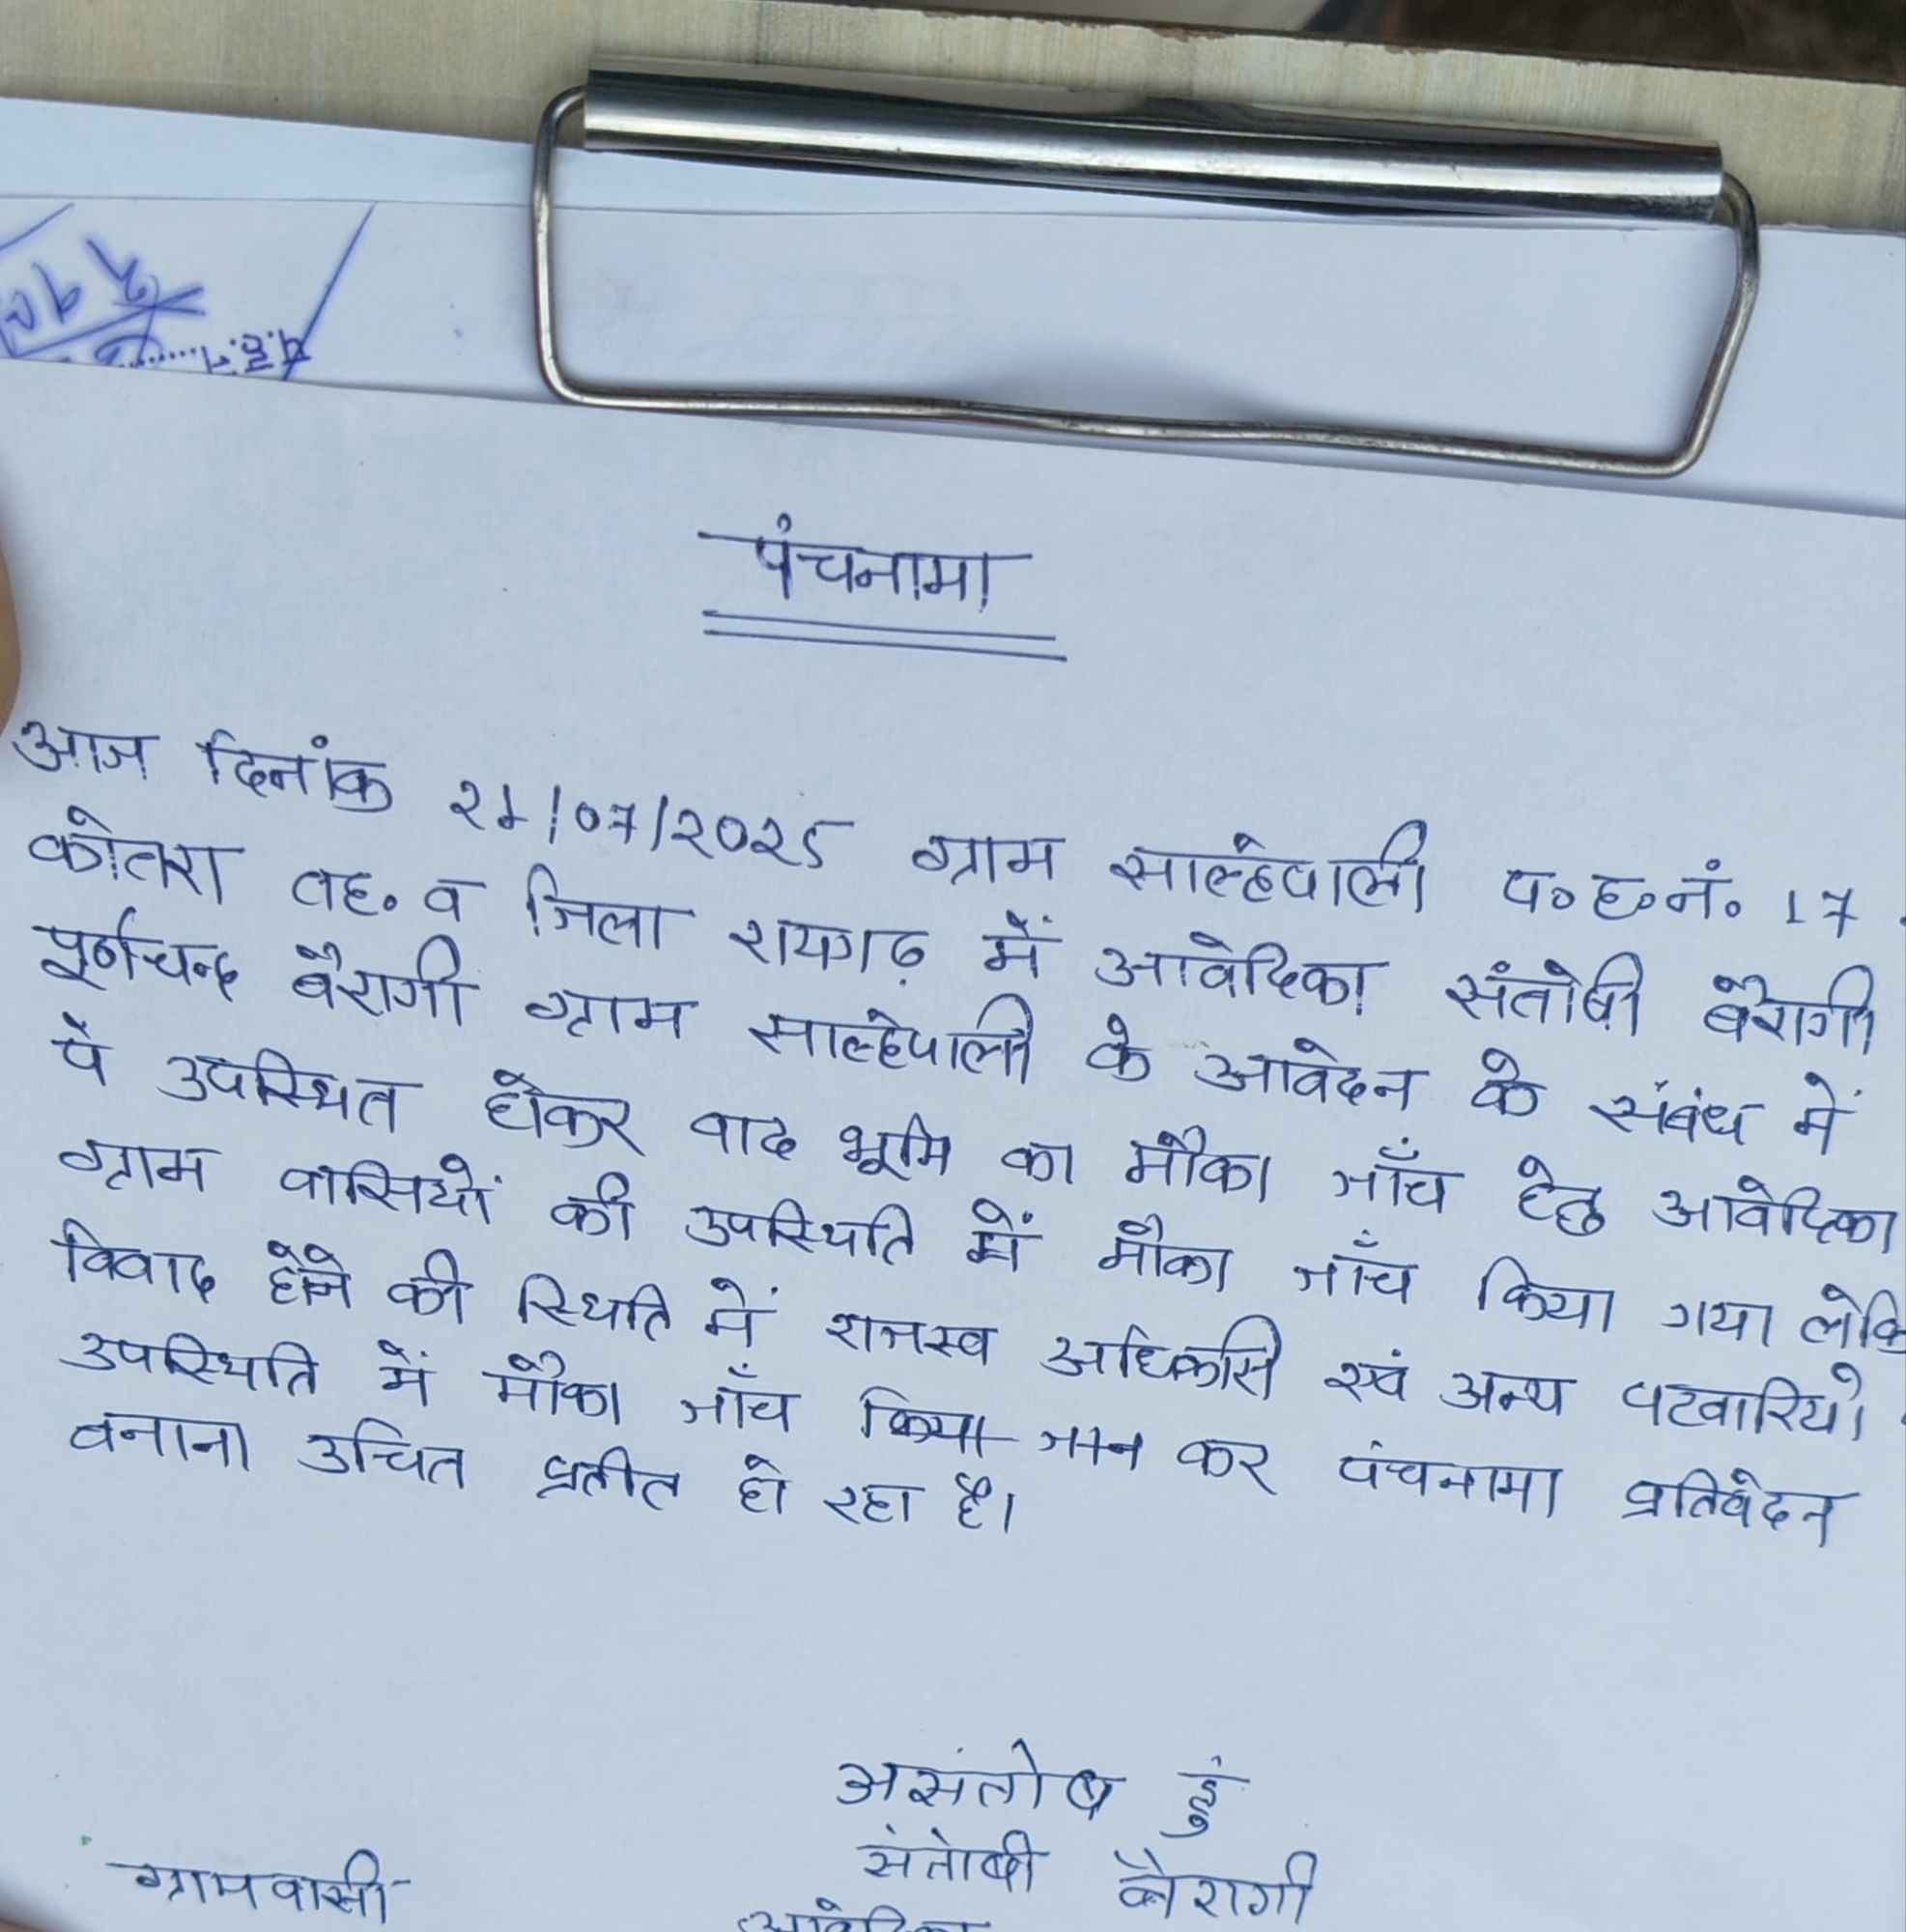 पंचनामा
आज दिनांक 21/07/2025 ग्राम साल्हेपाली प०ह०नं० 17
कोतरा तह० व जिला रायगढ़ में आवेदिका संतोषी बैरागी
पूर्णचन्द बैरागी ग्राम साल्हेपाली के आवेदन के संबंध में
पे उपस्थित होकर वाद भूमि का मौका जाँच हेतु आवेदिका
ग्राम वासियों की उपस्थिति में मौका जाँच किया गया लेकि
विवाद होने की स्थिति में राजस्व अधिकारी एवं अन्य पटवारियो
उपस्थिति में मौका जाँच किया जान कर पंचनामा प्रतिवेदन
बनाना उचित प्रतीत हो रहा है।
असंतोष हुं
संतोषी बैरागी
ग्रामवासी
आवेदिका